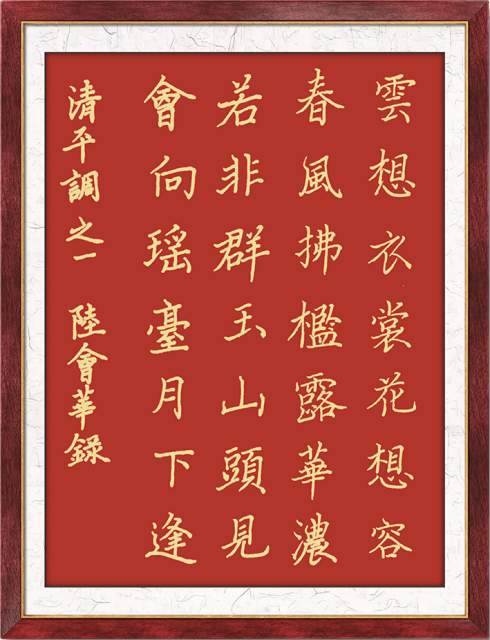 雲想衣裳花想容
春風拂檻露華濃
若非群玉山頭見
會向瑤臺月下逢
清平調之一 陸會華錄